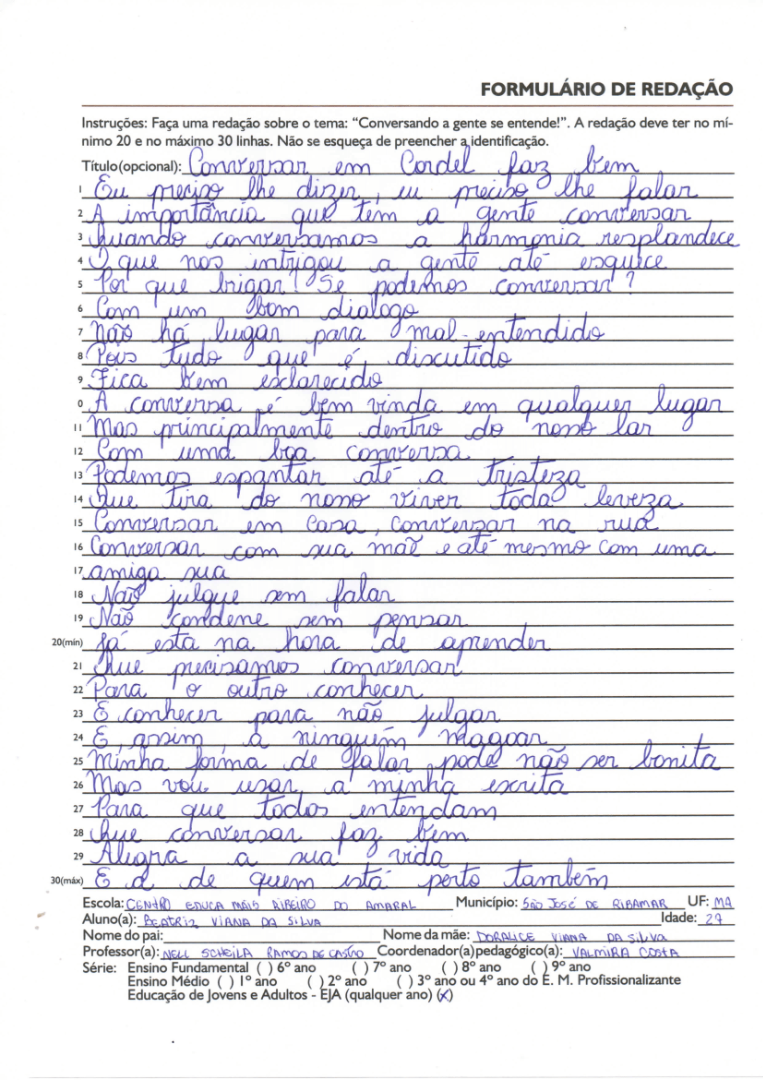 FORMULÁRIO DE REDAÇÃO
Instruções: Faça uma redação sobre o tema: “Conversando a gente se entende!”. A redação deve ter no mí-
nimo 20 e no máximo 30 linhas. Não se esqueça de preencher a identificação.
Título(opcional): Conversar em Cordel faz bem
1 Eu preciso lhe dizer, eu preciso lhe falar
2 A importância que tem a gente conversar
3 Quando conversamos a harmonia resplandece
4 O que nos intrigou a gente até esquece
5 Por que brigar! Se podemos conversar?
6 Com um bom dialogo
7 Não há lugar para mal-entendido
8 Pois tudo que é, discutido
9 Fica bem esclarecido
0 A conversa é bem vinda em qualquer lugar
11 Mas principalmente dentro do nosso lar
12 Com uma boa conversa
13 Podemos espantar até a tristeza
14 Que tira do nosso viver toda leveza
15 Conversar em casa, conversar na rua
16 Conversar com sua mãe e até mesmo com uma
17 amiga sua
18 Não julgue sem falar
19 Não condene sem pensar
20(min) Já esta na hora de aprender
21 Que precisamos conversar
22 Para o outro conhecer
23 E conhecer para não julgar
24 E, assim, a ninguém magoar
25 Minha forma de falar pode não ser bonita
26 Mas vou usar a minha escrita
27 Para que todos entendam
28 Que conversar faz bem
29 Alegra a sua vida
30(máx) E a de quem está perto também
Escola: CENTRO EDUCA MAIS RIBEIRO DO AMARAL Município: São José de RIBAMAR UF: MA
Aluno(a): BEATRIZ VIANA DA SILVA Idade: 27
Nome do pai: Nome da mãe: DORALICE VIANA DA SILVA
Professor(a): NELL SCHEILA RAMOS DE CASTRO Coordenador(a)pedagógico(a): VALMIRA COSTA
Série: Ensino Fundamental ( ) 6º ano ( ) 7º ano ( ) 8º ano ( ) 9º ano
Ensino Médio ( ) 1º ano ( ) 2º ano ( ) 3º ano ou 4º ano do E. M. Profissionalizante
Educação de Jovens e Adultos - EJA (qualquer ano) (X)